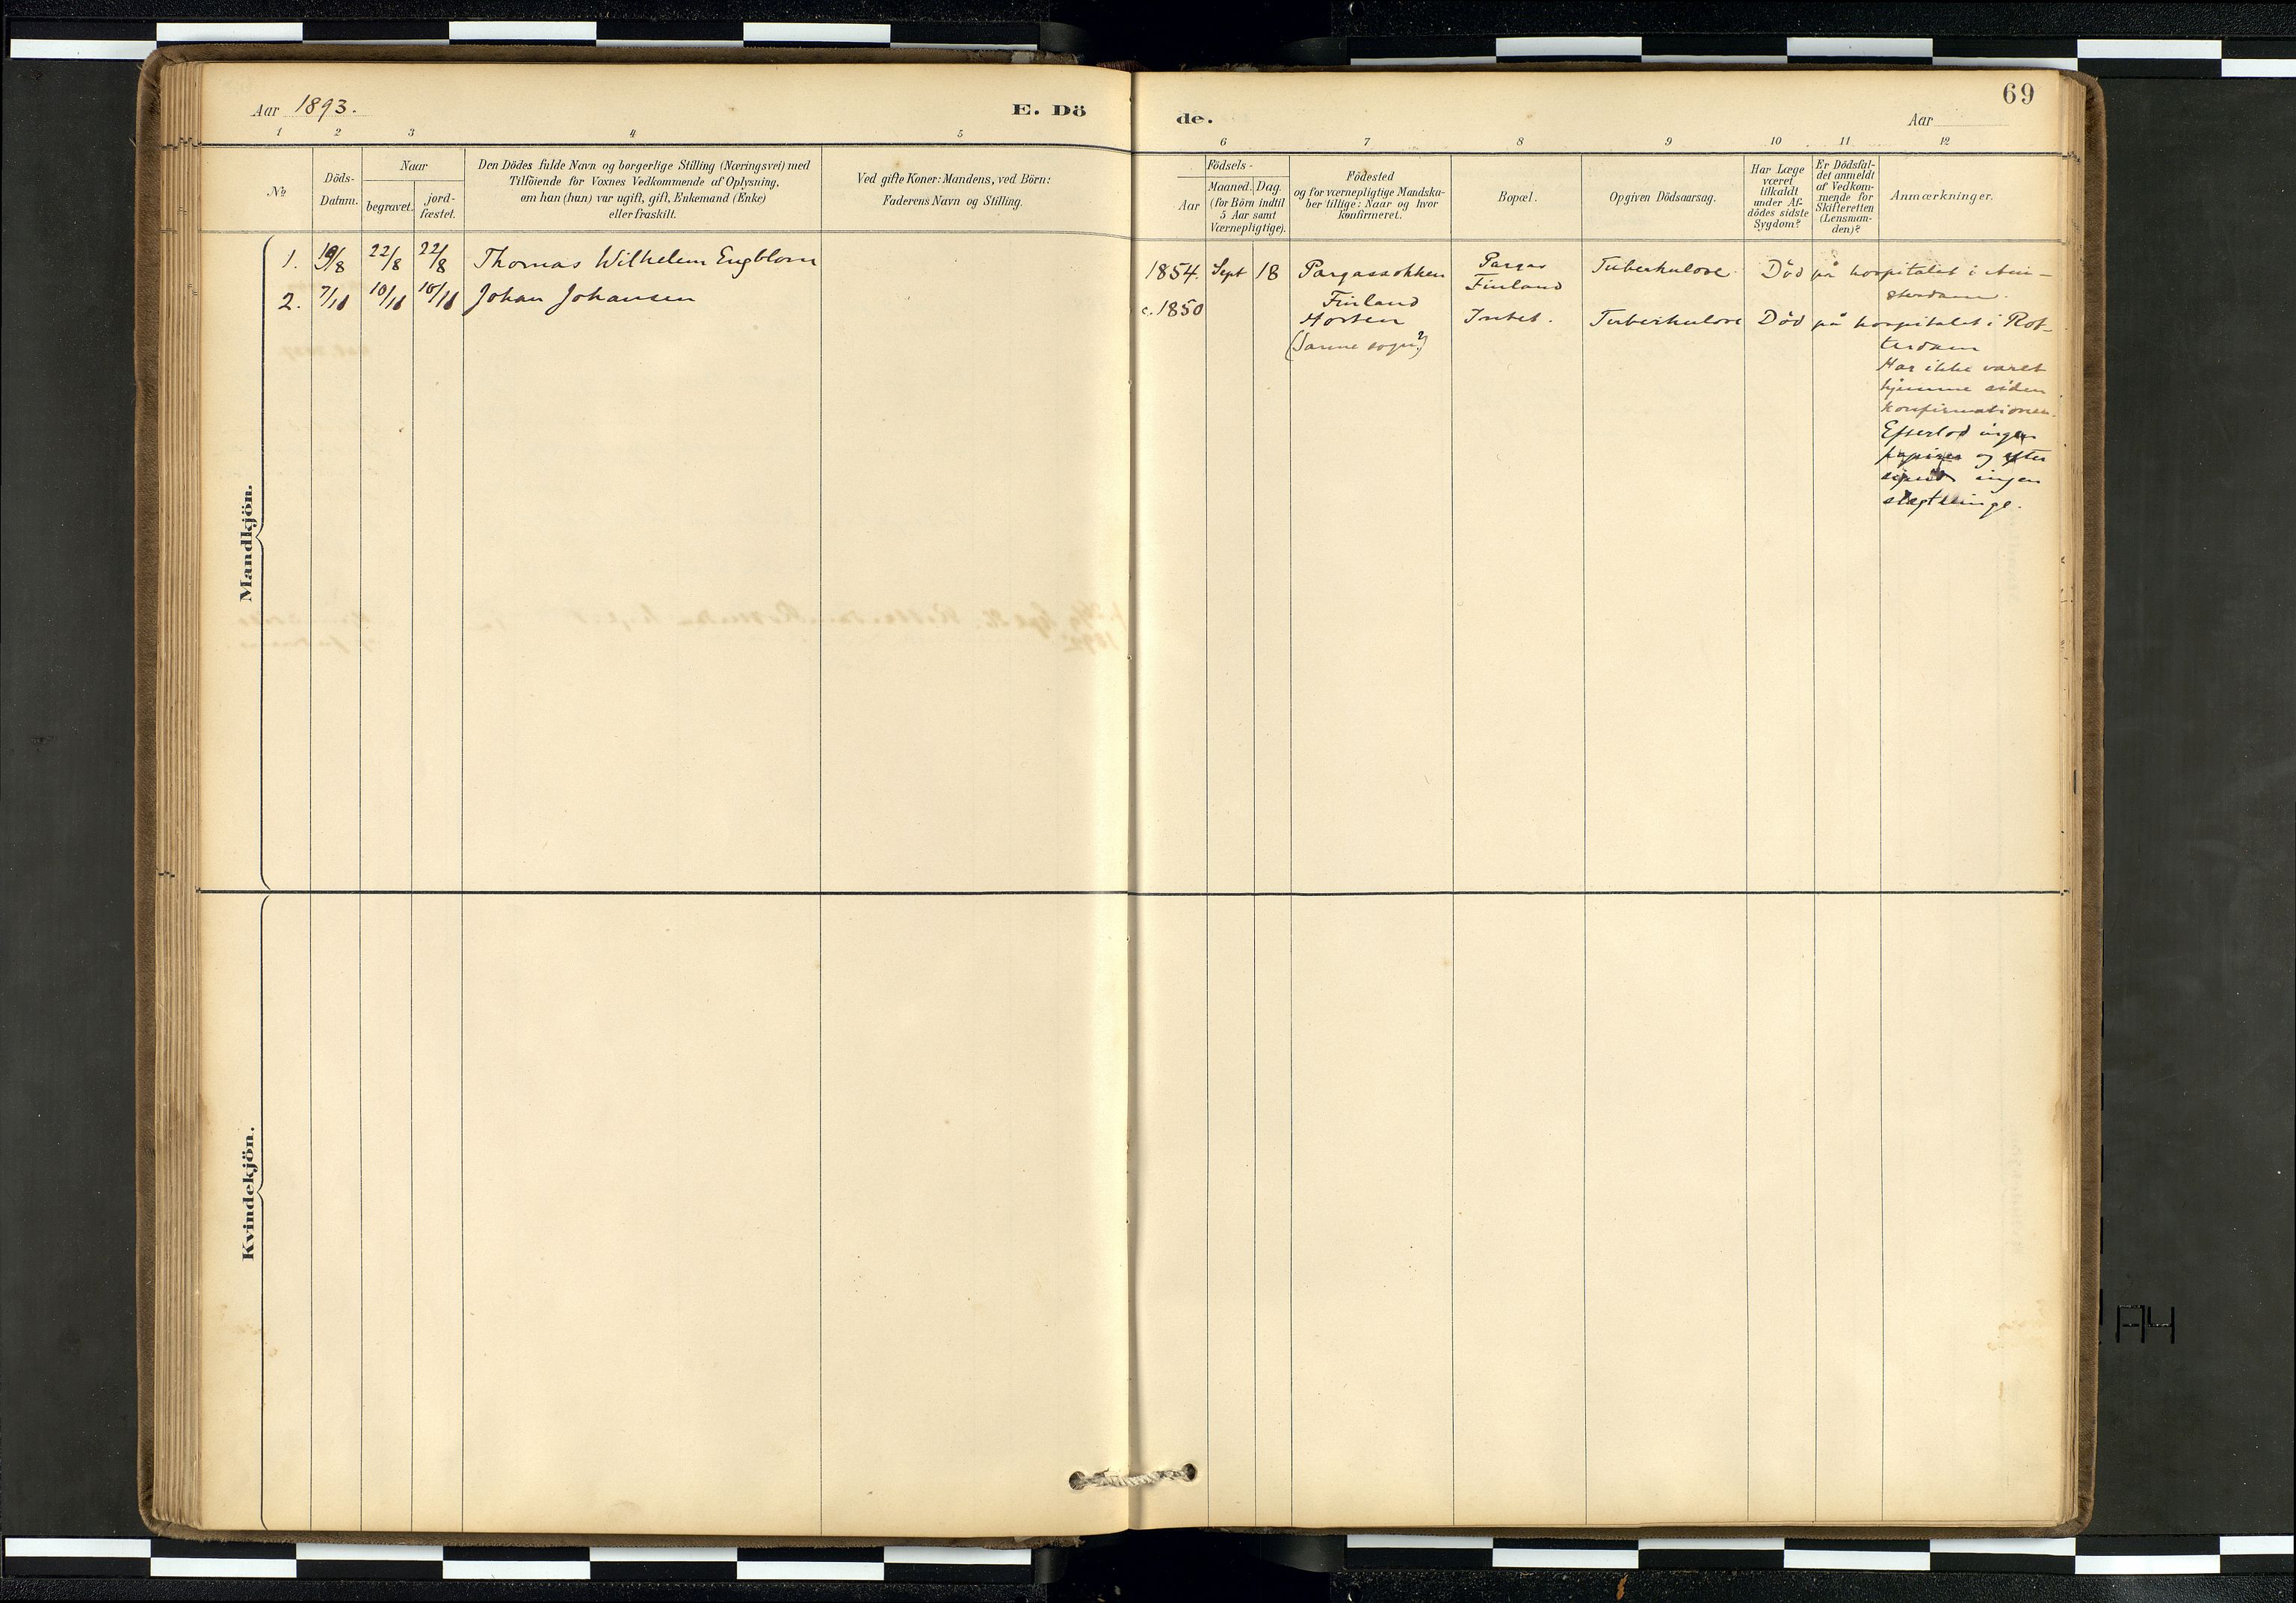 Aar 1893.
E. Dö
de.
Aar
69
1 2 3 4 5
6 7 8 9 10 11 12
№
Döds-
Datum.
Naar
begravet.
jord-
fæstet.
Den Dödes fulde Navn og borgerlige Stilling (Næringsvei) med
Tilföiende for Voxnes Vedkommende af Oplysning,
om han (hun) var ugift, gift, Enkemand (Enke)
eller fraskilt.
Ved gifte Koner: Mandens, ved Börn:
Faderens Navn og Stilling.
Födsels-
Aar
Maaned. Dag.
(for Börn indtil
5 Aar samt
Værnepligtige).
Födested
og for værnepligtige Mandska-
ber tillige: Naar og hvor
konfirmeret.
Bopæl.
Opgiven Dödsaarsag.
Har Læge
været
tilkaldt
under Af-
dödes sidste
Sygdom?
Er Dödsfal-
det anmeldt
af Vedkom-
mende for
Skifteretten
(Lensman-
den)?
Anmærkninger.
Mandkjön.
1. 19/8 22/8 22/8 Thomas Wilhelm Engblom
1854. Sept 18 Pargassokken
Finland
Pargas
Finland
Tuberkulose. Död på hospitalet i Am-
sterdam.
2. 7/10 10/10 10/10 Johan Johansen
c. 1850
Horten
(Samme sogn?)
Intet. Tuberkulose Död på hospitalet i Rot-
terdam
Har ikke været
hjemme siden
konfirmationen.
Efterlod ingen
papirer og efter
ingen
slægtninge.
Kvindekjön.